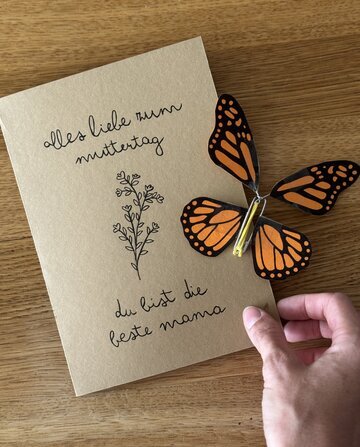 alles liebe zum
muttertag
du bist die
beste mama